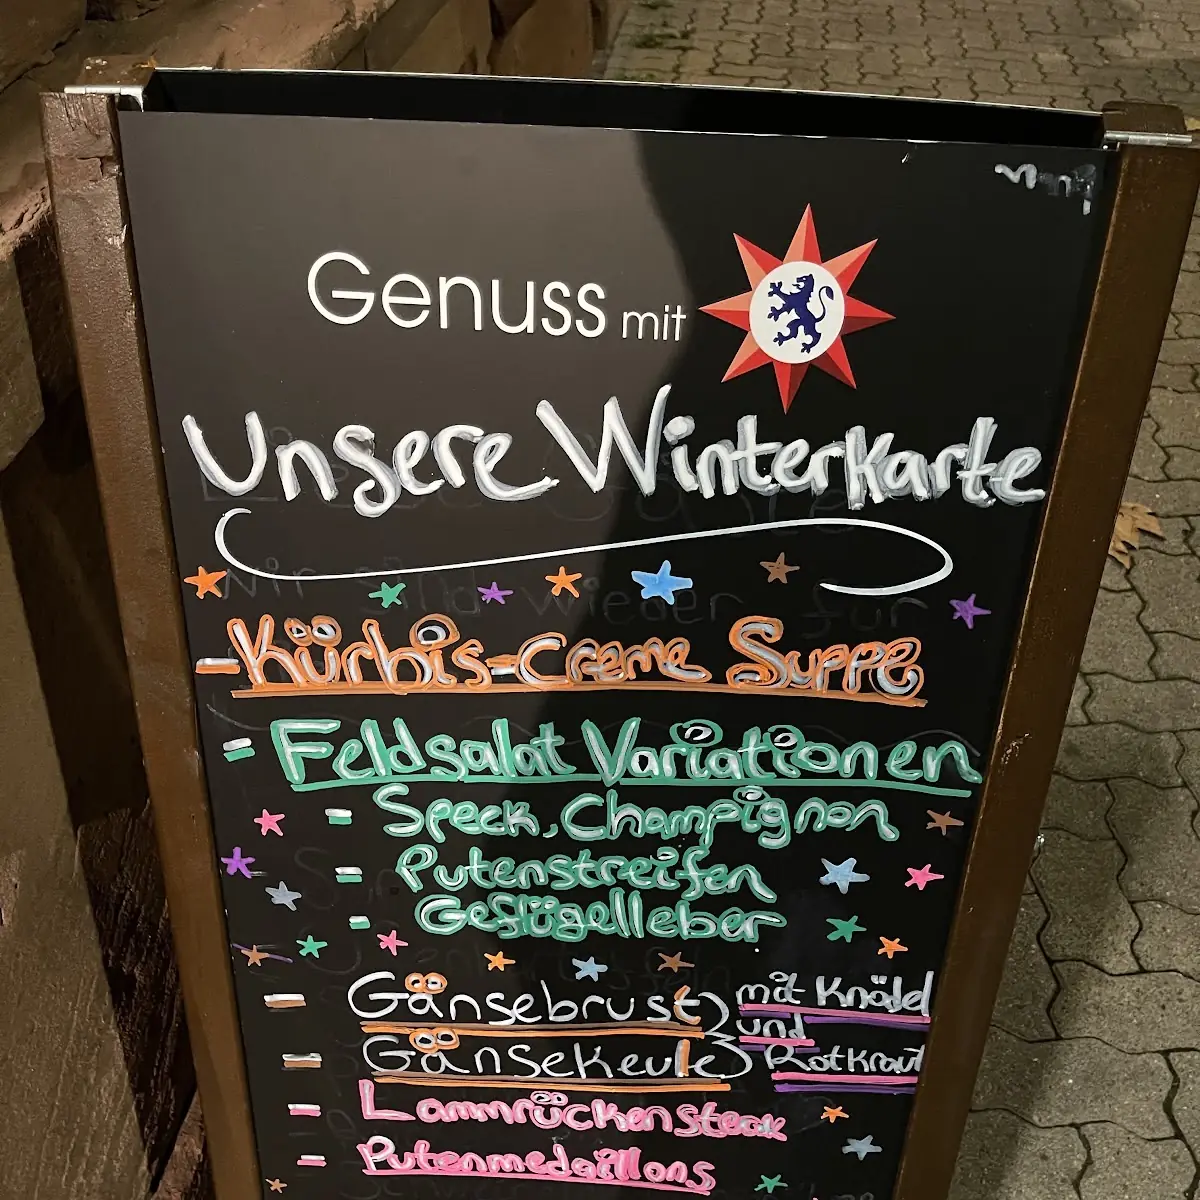 Genuss mit
Unsere Winterkarte
Wir sind wieder für
- Kürbis-Creme Suppe
- Feldsalat Variationen
- Speck, Champignon
- Putenstreifen
- Geflügelleber
- Gänsebrust) mit Knödel
und
- Gänsekeule) Rotkraut
- Lammrückensteak
- Putenmedaillons